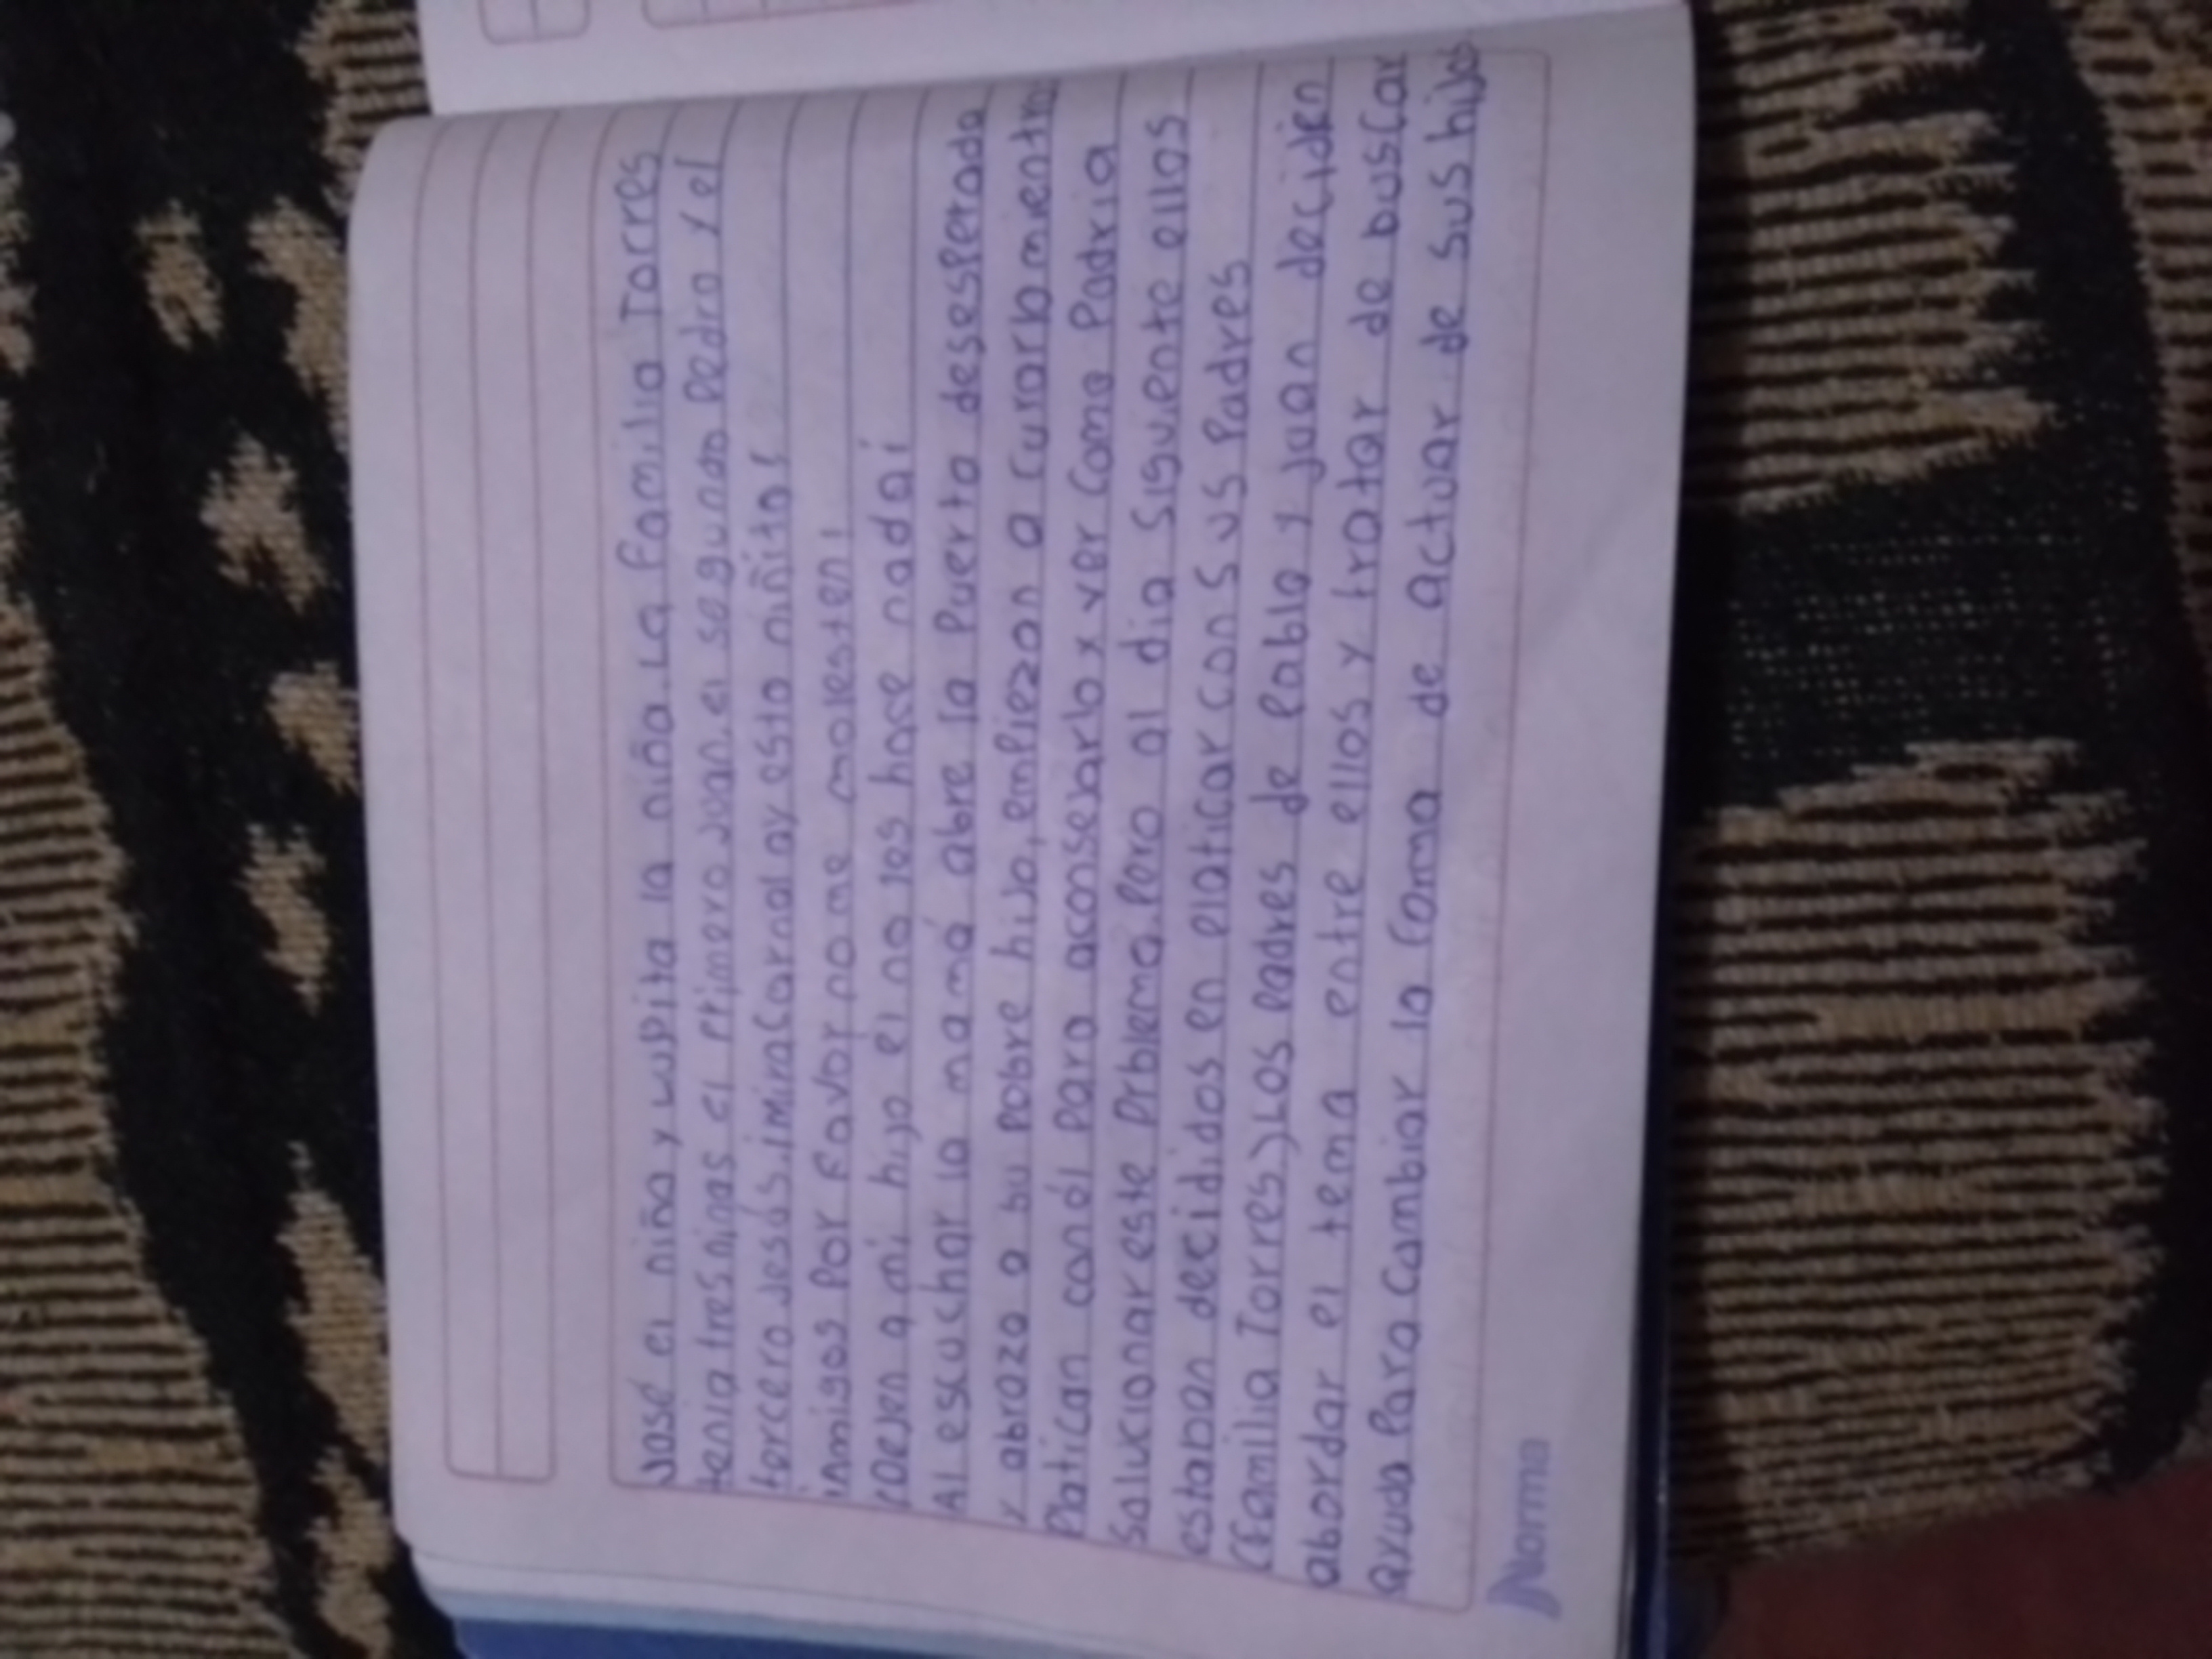 José el niño y Lupita la niña. La familia Torres
tenia tres ninas el primero Juan. el segundo Pedro y el
tercero Jesús. ¡mira Carnal ay esta niñita!
¡Amigos Por Favor no me molesten!
¡Dejen a mi hijo el no les hase nada¡
Al escuchar la mamá abre la Puerta desesperada
y abraza a su pobre hijo, empiezan a curarlo mientra
Platican con él para aconsejarlo x ver como Podria
Solucionar este Prblema. Pero al dia siguiente ellos
estaban decididos en platicar con sus Padres
(Familia Torres) Los Padres de Pablo y Juan deciden
abordar el tema entre ellos y tratar de buscar
ayuda Para Cambiar la Foma de actuar de sus hijos
Norma